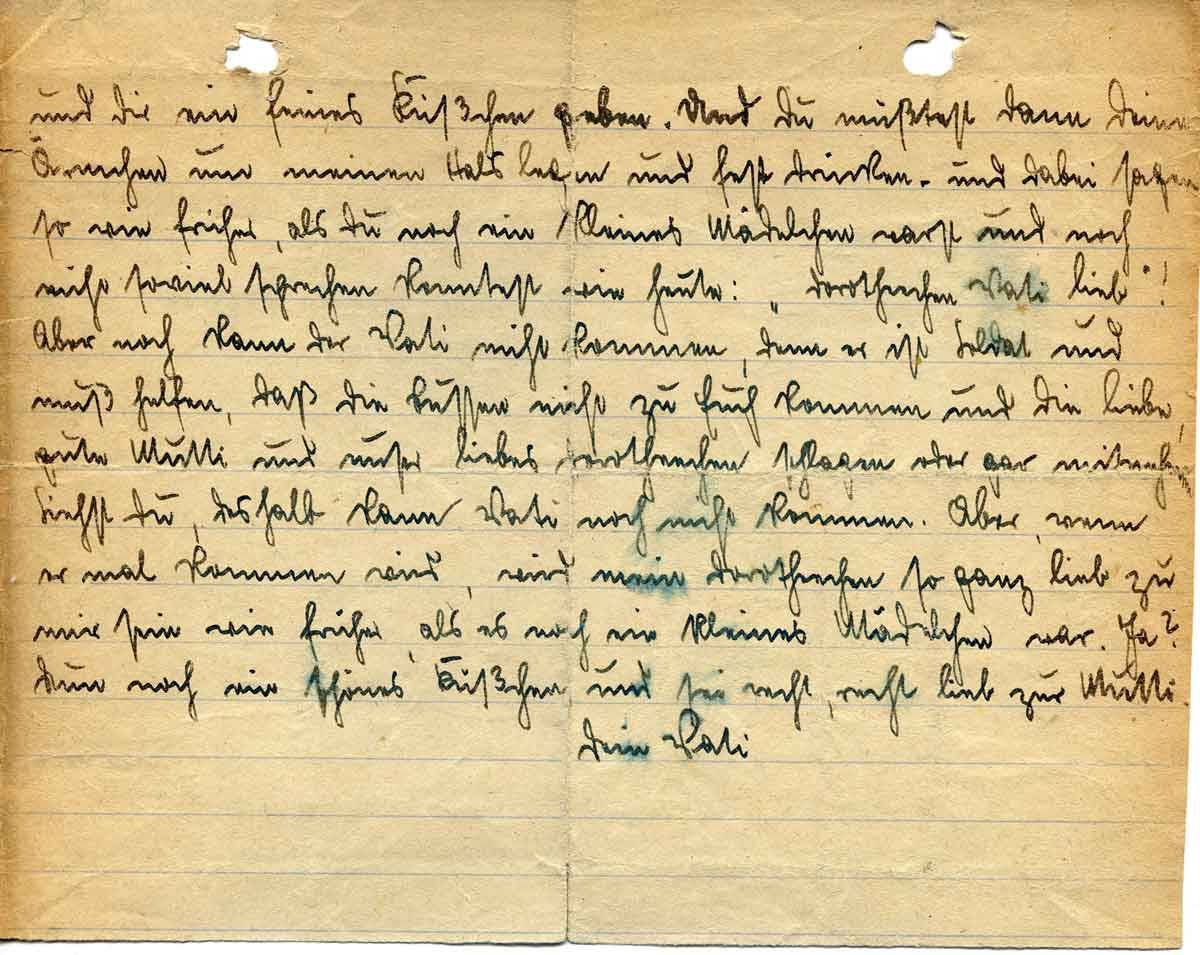 und dir ein feines Küßchen geben. Und du müßtest dann deine
Ärmchen um meinen Hals legen und fest drücken - und dabei sagen
so wie früher, als du noch ein kleines Mädelchen warst und noch
nicht soviel sprechen konntest wie heute: „Dorotheechen Vati lieb"!
Aber noch kann der Vati nicht kommen, denn er ist Soldat und
muß helfen, daß die Russen nicht zu Euch kommen und die liebe,
gute Mutti und unser liebes Dorotheechen schlagen oder gar mitnehmen.
Siehst du, deshalb kann Vati noch nicht kommen. Aber, wenn
er mal kommen wird, wird mein Dorotheechen so ganz lieb zu
mir sein wie früher, als es noch ein kleines Mädelchen war. Ja?
Nun noch ein schönes Küßchen und sei recht, recht lieb zur Mutti.
Dein Vati